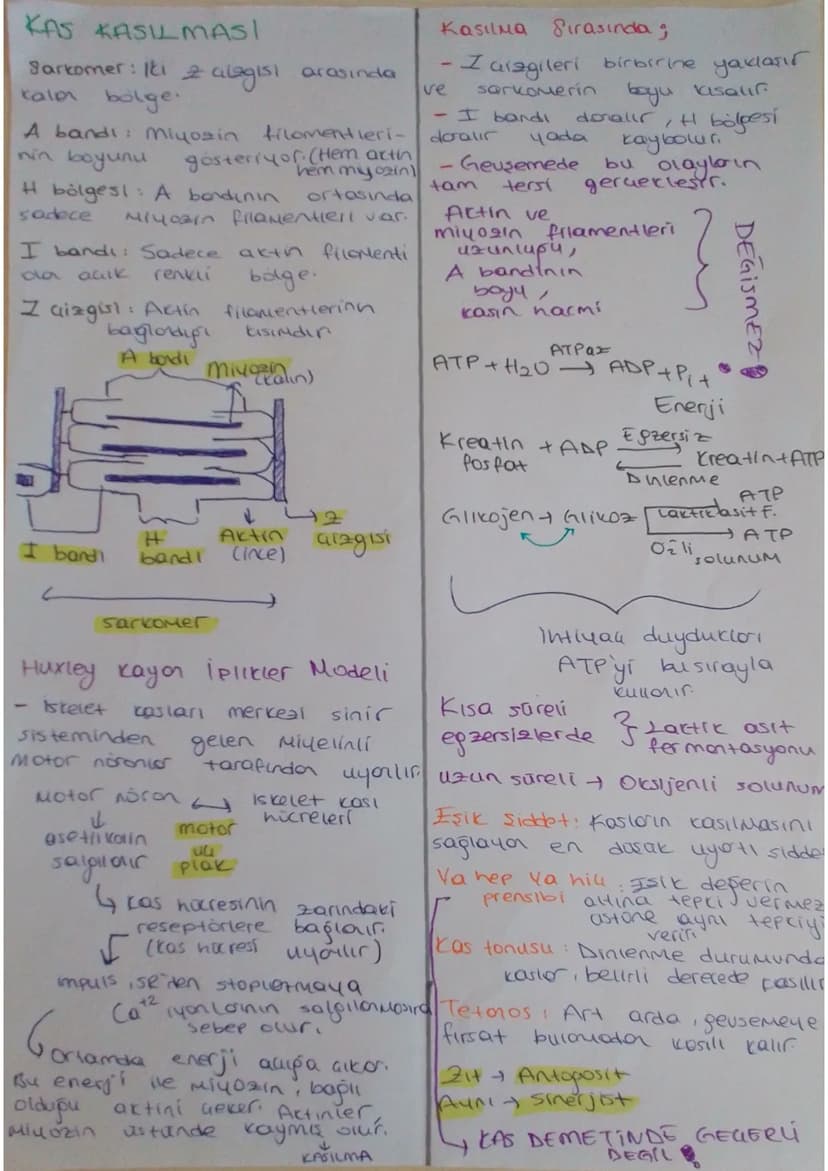 KAS KASILMASI
Sarkomer: İki Z çizgisi arasında
kalan bölge.
A bandı: Miyozin filamentleri-
nin boyunu gösteriyor. (Hem actin
hem myozin)
H bölgesi: A bandının ortasında
sadece miyozin filamentleri var.
I bandı: Sadece aktin filamenti
olan açık renkli bölge.
Z çizgisi: Actin filamentlerinin
bağlandığı kısımdır
A bandı
Miyozin
(kalın)
I bandı
H
bandı
Aktin
(ince)
Z
çizgisi
sarkomer
Huxley Kayan İplikler Modeli
- İskelet kasları merkezi sinir
sisteminden gelen miyelinli
motor nöronlar tarafından uyarılır
Motor nöron ↔ iskelet kası
hücreleri
asetilkolin
salgılanır
motor
uç
plak
↳ kas hücresinin zarındaki
reseptörlere bağlanır.
(kas hücresi uyarılır)
impuls, SER'den stoplazmaya
Ca+2 iyonlarının salgılanmasına
sebep olur.
Ortamda enerji açığa çıkar.
Bu enerji ile miyozin, bağlı
olduğu aktini çeker. Actinler,
miyozin üstünde kaymış olur.
KASILMA
Kasılma Sırasında;
- Z çizgileri birbirine yaklaşır
ve sarkomerin boyu kısalır.
- I bandı daralır, H bölgesi
daralır yada kaybolur.
- Gevşemede bu olayların
tam tersi gerçekleşir.
Actin ve
miyozin filamentleri
uzunluğu,
A bandının
boyu,
kasın hacmi
DEĞİŞMEZ!
ATP + H2O → ADP + Pi +
ATPaz
Enerji
Kreatin
fosfat
+ ADP
Egzersiz
Dinlenme
Kreatin + ATP
Glikojen → Glikoz
ATP
Laktik asit F.
→ ATP
O2'li
solunum
İhtiyaç duydukları
ATP'yi bu sırayla
kullanır
Kısa süreli
egzersizlerde } Laktik asit
fermantasyonu
uzun süreli → Oksijenli solunum
Eşik Şiddet: Kasların kasılmasını
sağlayan en düşük uyartı şidde
Ya hep Ya hiç
prensibi
: Eşik değerin
altına tepki vermez
üstüne aynı tepkiyi
verir.
Kas tonusu: Dinlenme durumunda
kaslar, belirli derecede kasılır
Tetanos: Art arda, gevşemeye
fırsat bulamadan kasılı kalır.
Zıt → Antagonist
Aynı → Sinerjist
↳ KAS DEMETİNDE GEÇERLİ
DEĞİL!